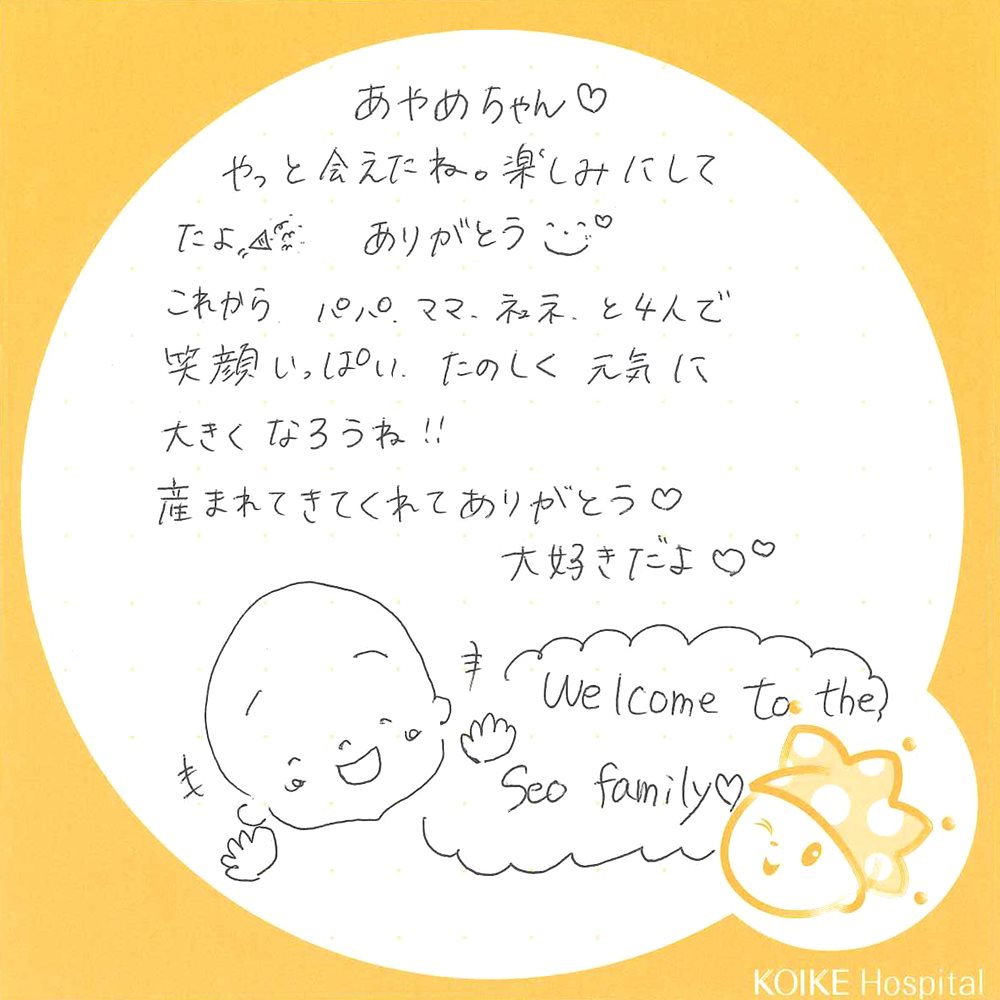 あやめちゃん♡
やっと会えたね。楽しみにして
たよ ありがとう
これから パパ、ママ、ネネ、と4人で
笑顔いっぱい、たのしく 元気に
大きくなろうね!!
産まれてきてくれてありがとう♡
大好きだよ♡♡
Welcome to the
Seo family♡
KOIKE Hospital